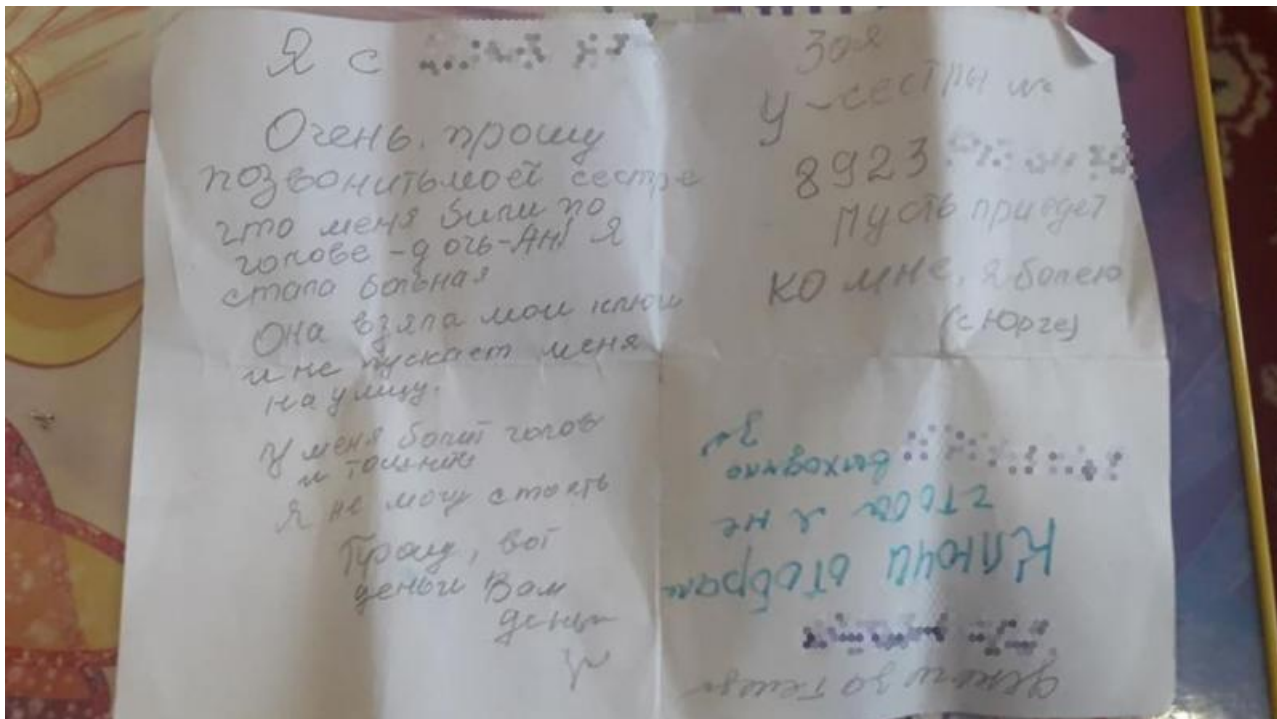 Я с
Очень прошу
позвонить моей сестре
что меня били по
голове - дочь - Аня Я
стала больная
Она взяла мои ключи
и не пускает меня
на улицу.
У меня болит голов
и тошнит
Я не могу стоять
Прошу, вот
деньги Вам
Зоя
У - сестры №
8923
Пусть приедет
ко мне, я болею
(с Юрге)
Ключи отобрали
чтобы я не
выходила
деньги за